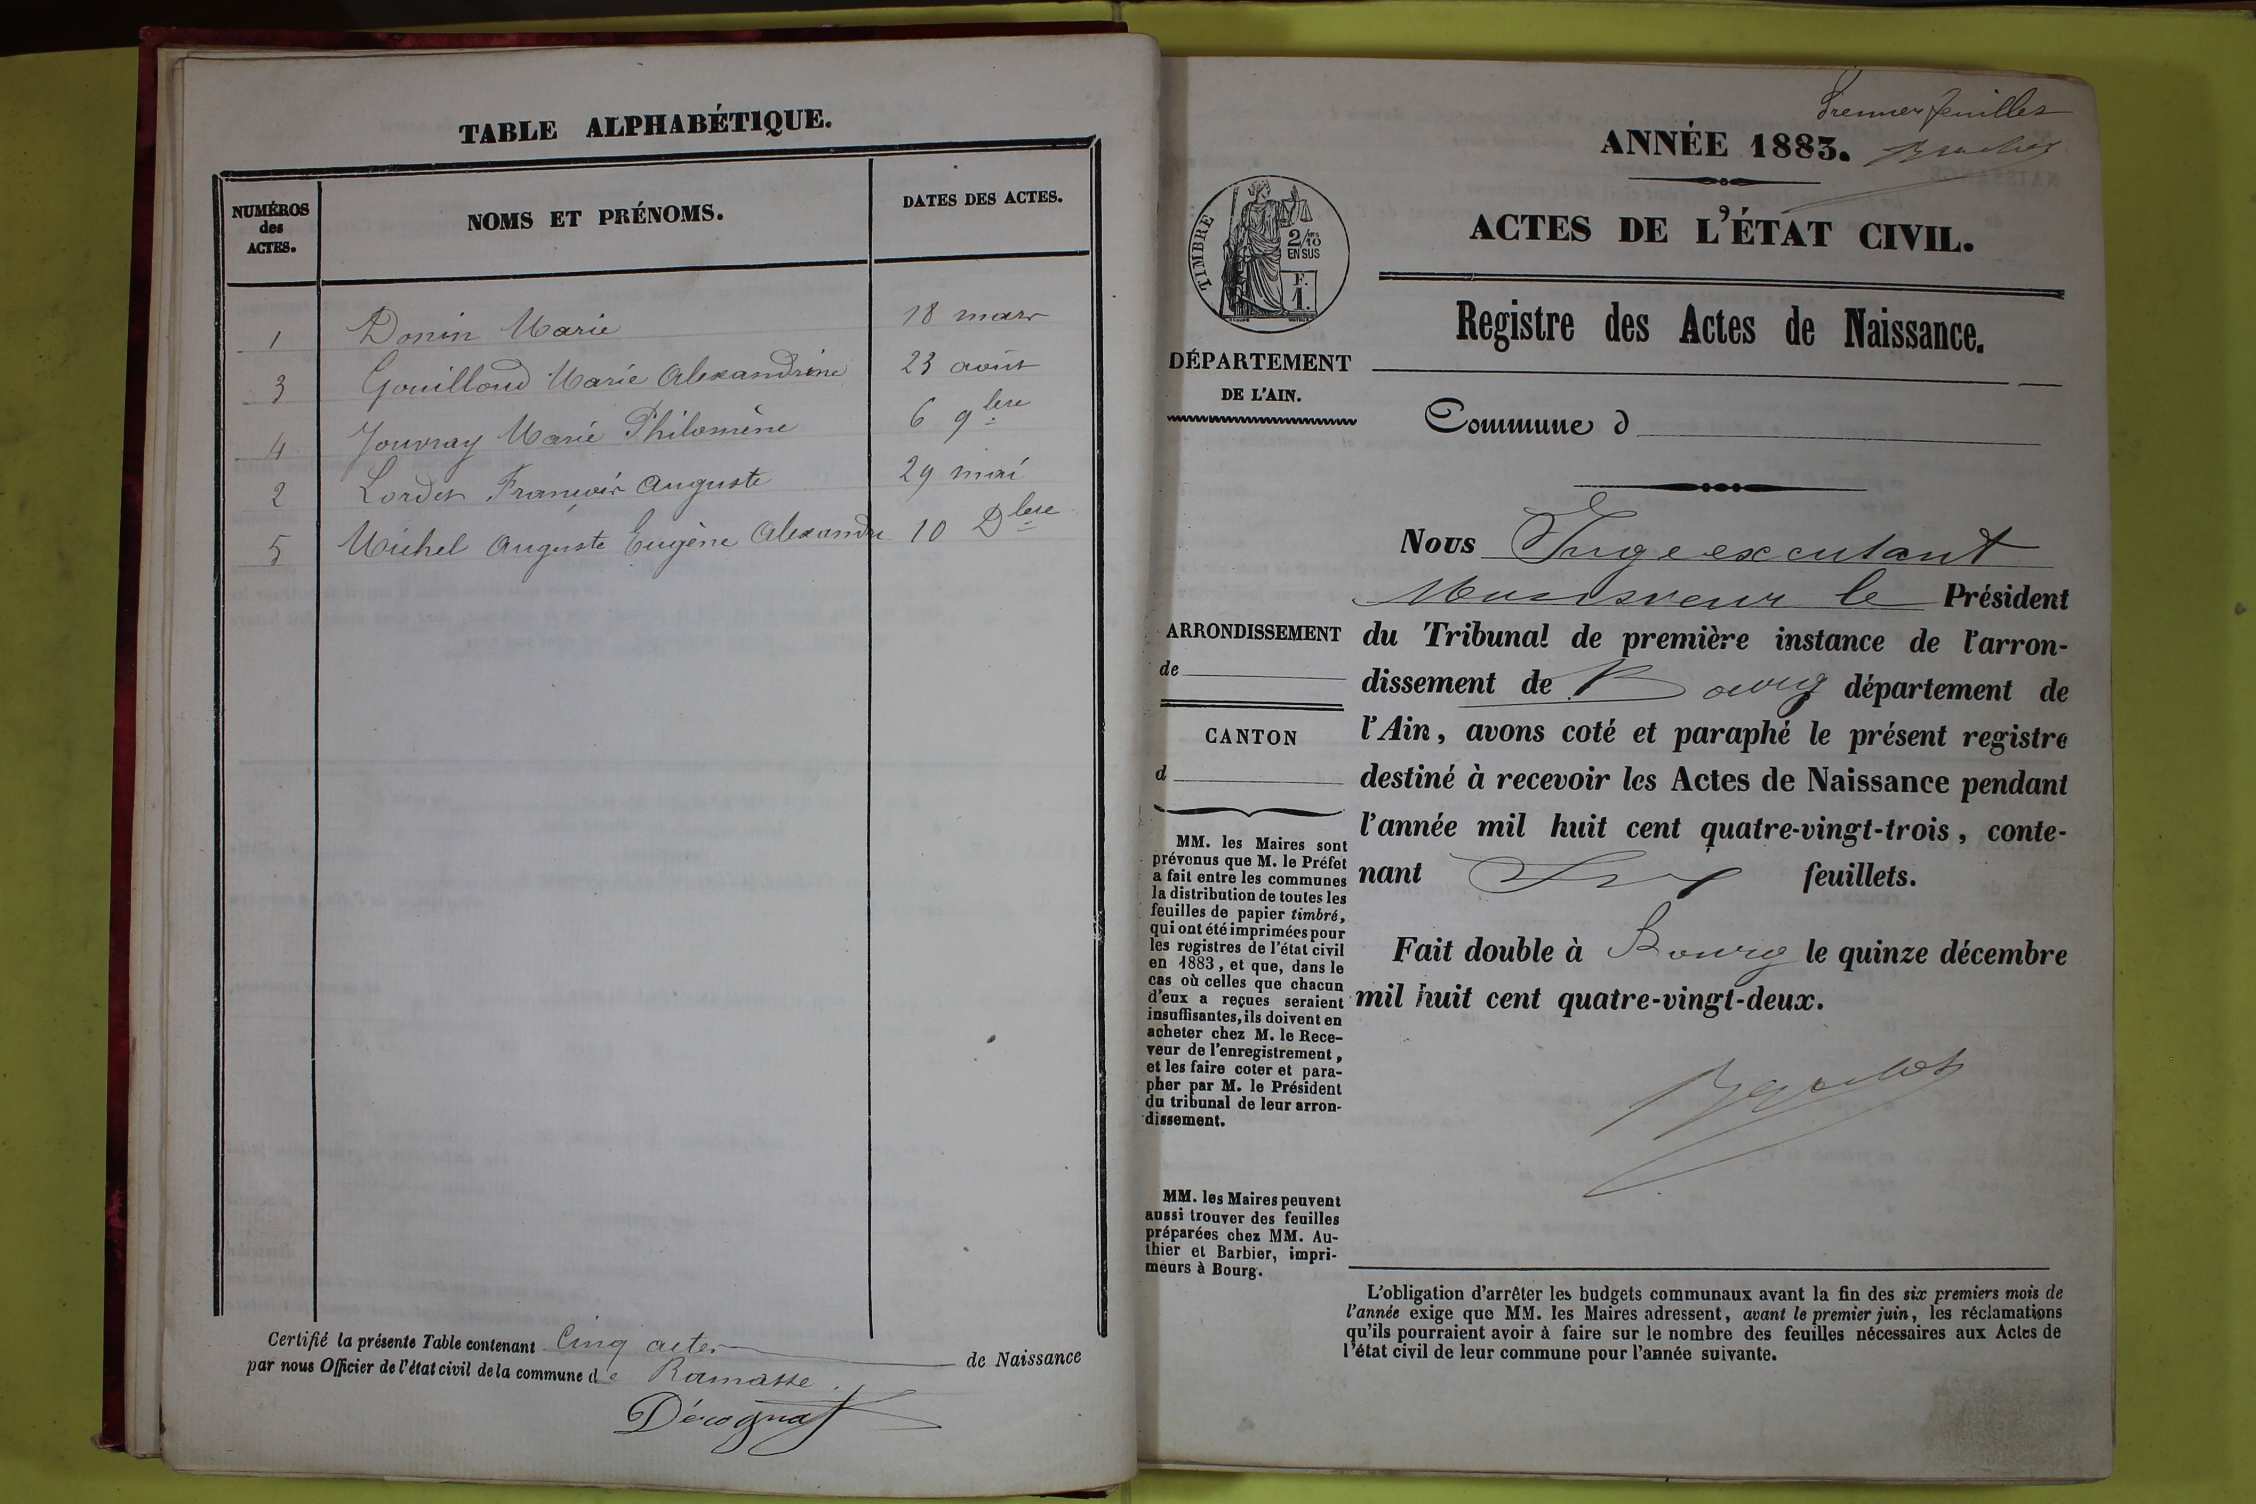 TABLE ALPHABÉTIQUE.
NUMÉROS des ACTES.
NOMS ET PRÉNOMS.
DATES DES ACTES.
1 Donin Marie 18 mars
3 Gouilloud Marie Alexandrine 23 août
4 Jouvray Marie Philomène 6 9bre
2 Lordet François Auguste 29 mai
5 Michel Auguste Eugène Alexandre 10 Dbre
Certifié la présente Table contenant Cinq actes de Naissance
par nous Officier de l'état civil de la commune de Ramasse.
Décognat
Premier feuillet
ANNÉE 1883.
ACTES DE L'ÉTAT CIVIL.
TIMBRE
2/10
EN SUS
F.
1.
Registre des Actes de Naissance.
DÉPARTEMENT
DE L'AIN.
Commune d
ARRONDISSEMENT
de
CANTON
d
MM. les Maires sont
prévenus que M. le Préfet
a fait entre les communes
la distribution de toutes les
feuilles de papier timbré,
qui ont été imprimées pour
les registres de l'état civil
en 1883, et que, dans le
cas où celles que chacun
d'eux a reçues seraient
insuffisantes, ils doivent en
acheter chez M. le Rece-
veur de l'enregistrement,
et les faire coter et para-
pher par M. le Président
du tribunal de leur arron-
dissement.
MM. les Maires peuvent
aussi trouver des feuilles
préparées chez MM. Au-
thier et Barbier, impri-
meurs à Bourg.
Nous Juge
Monsieur le Président
du Tribunal de première instance de l'arron-
dissement de Bourg département de
l'Ain, avons coté et paraphé le présent registre
destiné à recevoir les Actes de Naissance pendant
l'année mil huit cent quatre-vingt-trois, conte-
nant Six feuillets.
Fait double à Bourg le quinze décembre
mil huit cent quatre-vingt-deux.
L'obligation d'arrêter les budgets communaux avant la fin des six premiers mois de
l'année exige que MM. les Maires adressent, avant le premier juin, les réclamations
qu'ils pourraient avoir à faire sur le nombre des feuilles nécessaires aux Actes de
l'état civil de leur commune pour l'année suivante.